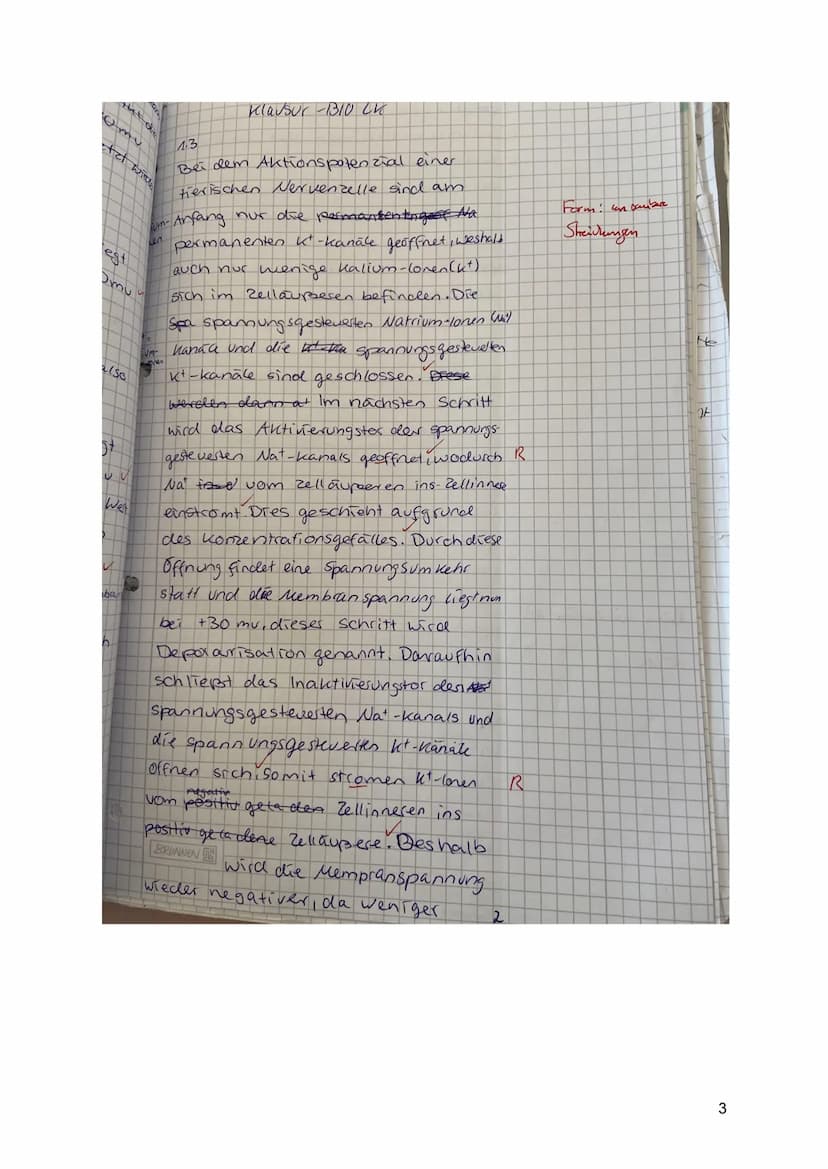 Klausur - BIO LK
1.3
Bei dem Aktionspotenzial einer
tierischen Nervenzelle sind am
Anfang nur die permanenten Na
permanenten K⁺-Kanäle geöffnet, weshalb
auch nur wenige Kalium-Ionen (K⁺)
sich im Zelläußeren befinden. Die
Spa spannungsgesteuerten Natrium-Ionen (Na⁺)
Kanäle und die spannungsgesteuerten
K⁺-Kanäle sind geschlossen. Diese
werden dann at Im nächsten Schritt
wird das Aktivierungstor der spannungs-
gesteuerten Na⁺-Kanals geoffnet, wodurch R
Na⁺ vom Zelläußeren ins Zellinnere
einströmt. Dies geschieht aufgrund
des Konzentrationsgefälles. Durch diese
Öffnung findet eine Spannungsumkehr
statt und die Membranspannung liegt nun
bei +30 mv, dieses Schritt wird
Depolarisation genannt. Daraufhin
schließt das Inaktivierungstor des
spannungsgesteuerten Na⁺-Kanals und
die spannungsgesteuerten K⁺-Kanäle
öffnen sich, somit stromen K⁺-Ionen R
negativ
vom positiv geladen Zellinneren ins
positiv geladene Zelläußere. Deshalb
BRUNNEN
wird die Mempranspannung
wieder negativer, da weniger
2
Form: unsaubere
Streichungen
egt
0mv
also
Wei
3